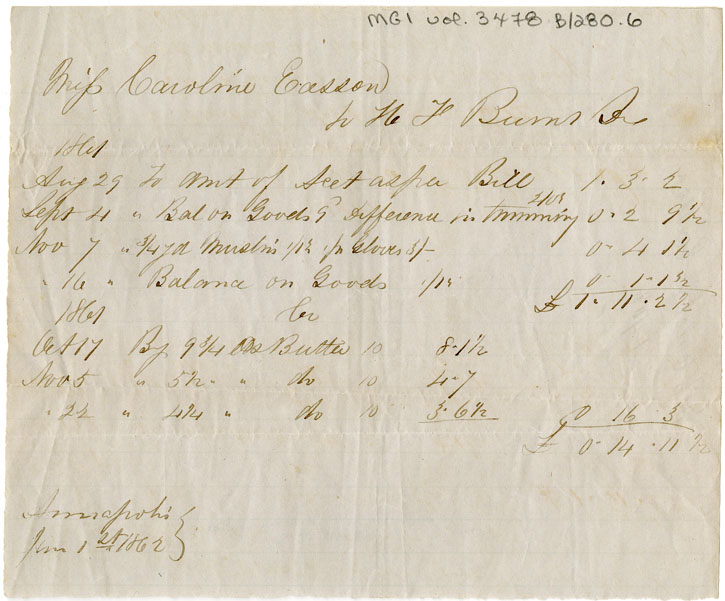 MG1 vol. 3478 B/280.6
Miss Caroline Easson
To H F Burns Dr
1861
Aug 29 To Amt of Acct as per Bill 1 - 3 - 2
Sept 4 " Bal on Goods & Difference in Trimming 0 - 2 9 1/2
Nov 7 " 3/4 yd Muslin 1/1 1/2 1 pr Gloves 3/- 0 - 4 1 1/2
" 16 " Balance on Goods 1/1 1/2 0 - 1 - 1 1/2
£ 1 - 11 - 2 1/2
1861 Cr
Oct 17 By 9 3/4 lbs Butter 10 8 - 1 1/2
Nov 5 " 5 1/2 " " do 10 4 - 7
" 22 " 4 1/4 " do 10 3 - 6 1/2
0 16 - 3
£ 0 - 14 - 11 1/2
Annapolis
Jan 1st 1862